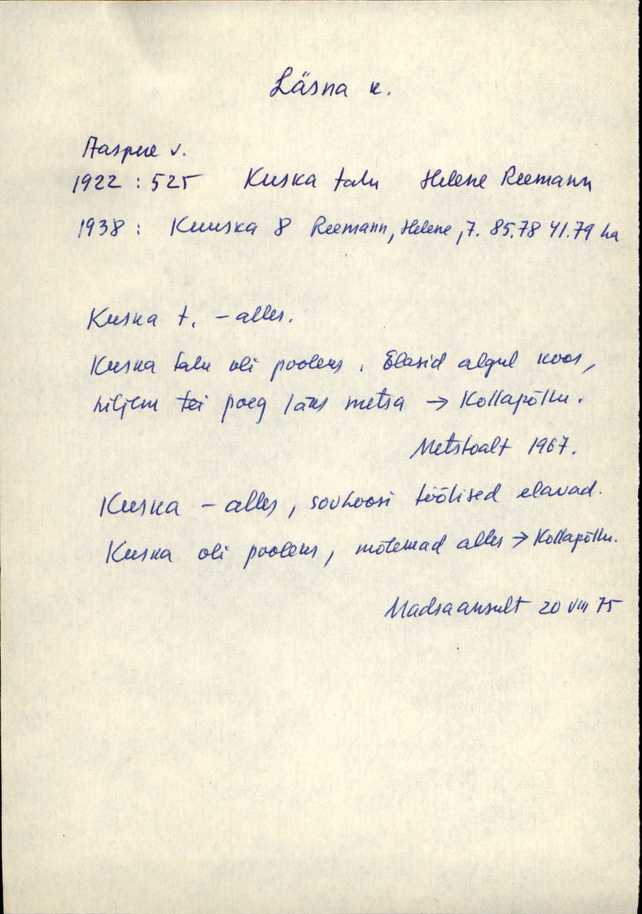 Läsna k.
Aaspere v.
1922 : 525 Kuska talu Helene Reemann
1938 : Kuuska 8 Reemann, Helene, 7. 85.78 41.79 ha
Kuska t. – alles.
Kuska talu oli pooleks. Elasid algul koos,
hiljem tei poeg läks metsa → Kollapõllu.
Metstoalt 1967.
Kuska – alles, sovhoosi töölised elavad.
Kuska oli pooleks, mõlemad alles → Kollapõllu.
Madsaansult 20 VIII 75